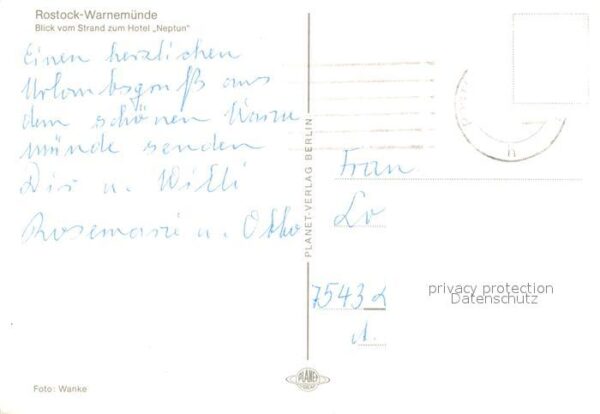 Rostock-Warnemünde
Blick vom Strand zum Hotel „Neptun"
Einen herzlichen
Urlaubsgruß aus
dem schönen Warne
münde senden
Dir u. Willi
Rosemarie u. Otto
PLANET-VERLAG BERLIN
Frau
Lo
7543
privacy protection
Datenschutz
Foto: Wanke
PLANET